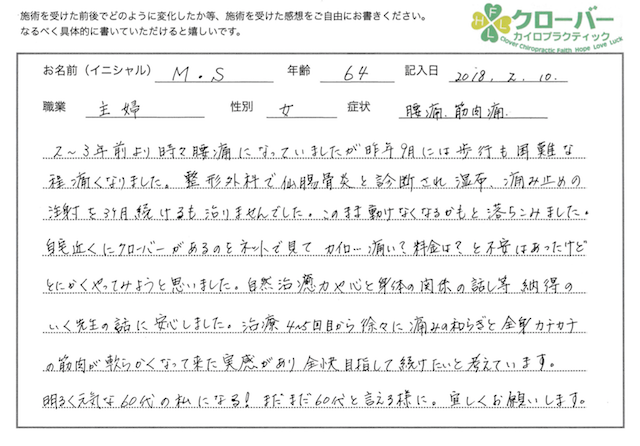 施術を受けた前後でどのように変化したか等、施術を受けた感想をご自由にお書きください。
なるべく具体的に書いていただけると嬉しいです。
HFLL
クローバー
カイロプラクティック
Clover Chiropractic Faith Hope Love Luck
お名前（イニシャル） M.S 年齢 64 記入日 2018.2.10.
職業 主婦 性別 女 症状 腰痛.筋肉痛.
2〜3年前より時々腰痛になっていましたが昨年9月には歩行も困難な
程痛くなりました。整形外科で仙腸骨炎と診断され湿布、痛み止めの
注射を3ヶ月続けるも治りませんでした。このまま動けなくなるかもと落ちこみました。
自宅近くにクローバーがあるのをネットで見て カイロ…痛い？料金は？と不安はあったけど
とにかくやってみようと思いました。自然治癒力や心と身体の関係の話し等 納得の
いく先生の話に安心しました。治療4〜5回目から徐々に痛みの和らぎと全身カチカチ
の筋肉が軟らかくなって来た実感があり 全快目指して続けたいと考えています。
明るく元気な60代の私になる！まだまだ60代と言える様に。宜しくお願いします。